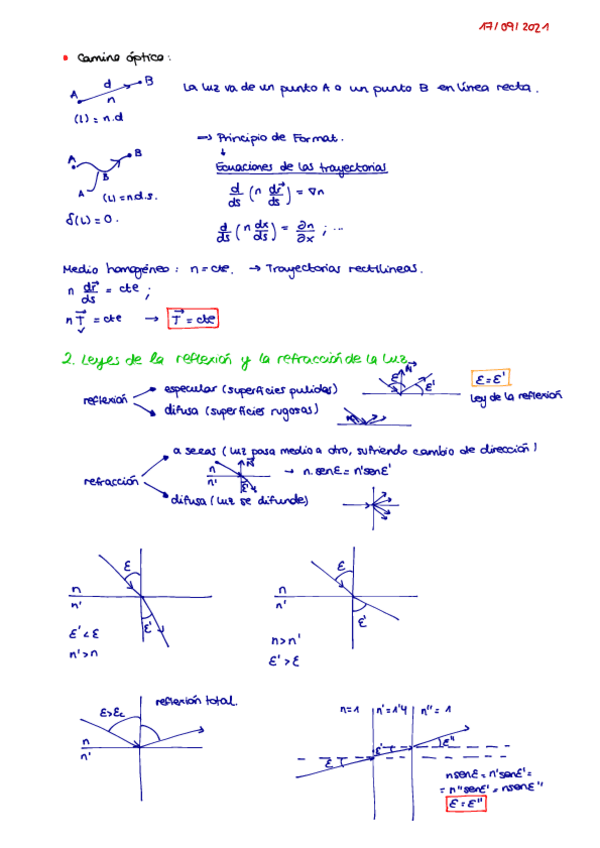 17/09/2021
• Camino óptico:
A d B
n
La luz va de un punto A a un punto B en línea recta.
(L) = n.d
→ Principio de Format.
A B
B
A
(L) = n.d.s.
Ecuaciones de las trayectorias
d/ds (n dr⃗/ds) = ∇n
δ(L) = 0.
d/ds (n dx/ds) = ∂n/∂x ; ...
Medio homogéneo: n = cte. → Trayectorias rectilíneas.
n dr⃗/ds = cte ;
n T⃗ = cte → T⃗ = cte
2. Leyes de la reflexión y la refracción de la luz
reflexión
especular (superficies pulidas)
ε N⃗ ε'
ε = ε'
Ley de la reflexión
difusa (superficies rugosas)
refracción
a secas (luz pasa medio a otro, sufriendo cambio de dirección)
n
n'
N⃗
ε'
→ n.senε = n'senε'
difusa (luz se difunde)
ε
n
n'
ε'
ε' < ε
n' > n
ε
n
n'
ε'
n > n'
ε' > ε
reflexión total.
ε > εc
n
n'
n = 1 n' = 1'4 n'' = 1
ε ε' ε''
n senε = n'senε' =
= n''senε' = nsenε''
ε = ε''